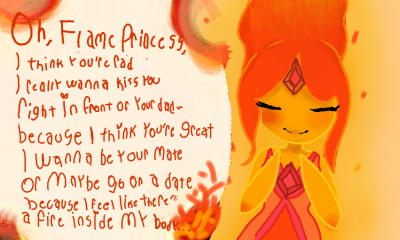 Oh, Flame Princess,
I think you're rad
I really wanna kiss you
right in front of your dad~
because I think you're great
I wanna be your mate
or maybe go on a date
because I feel like there's
a fire inside my body...